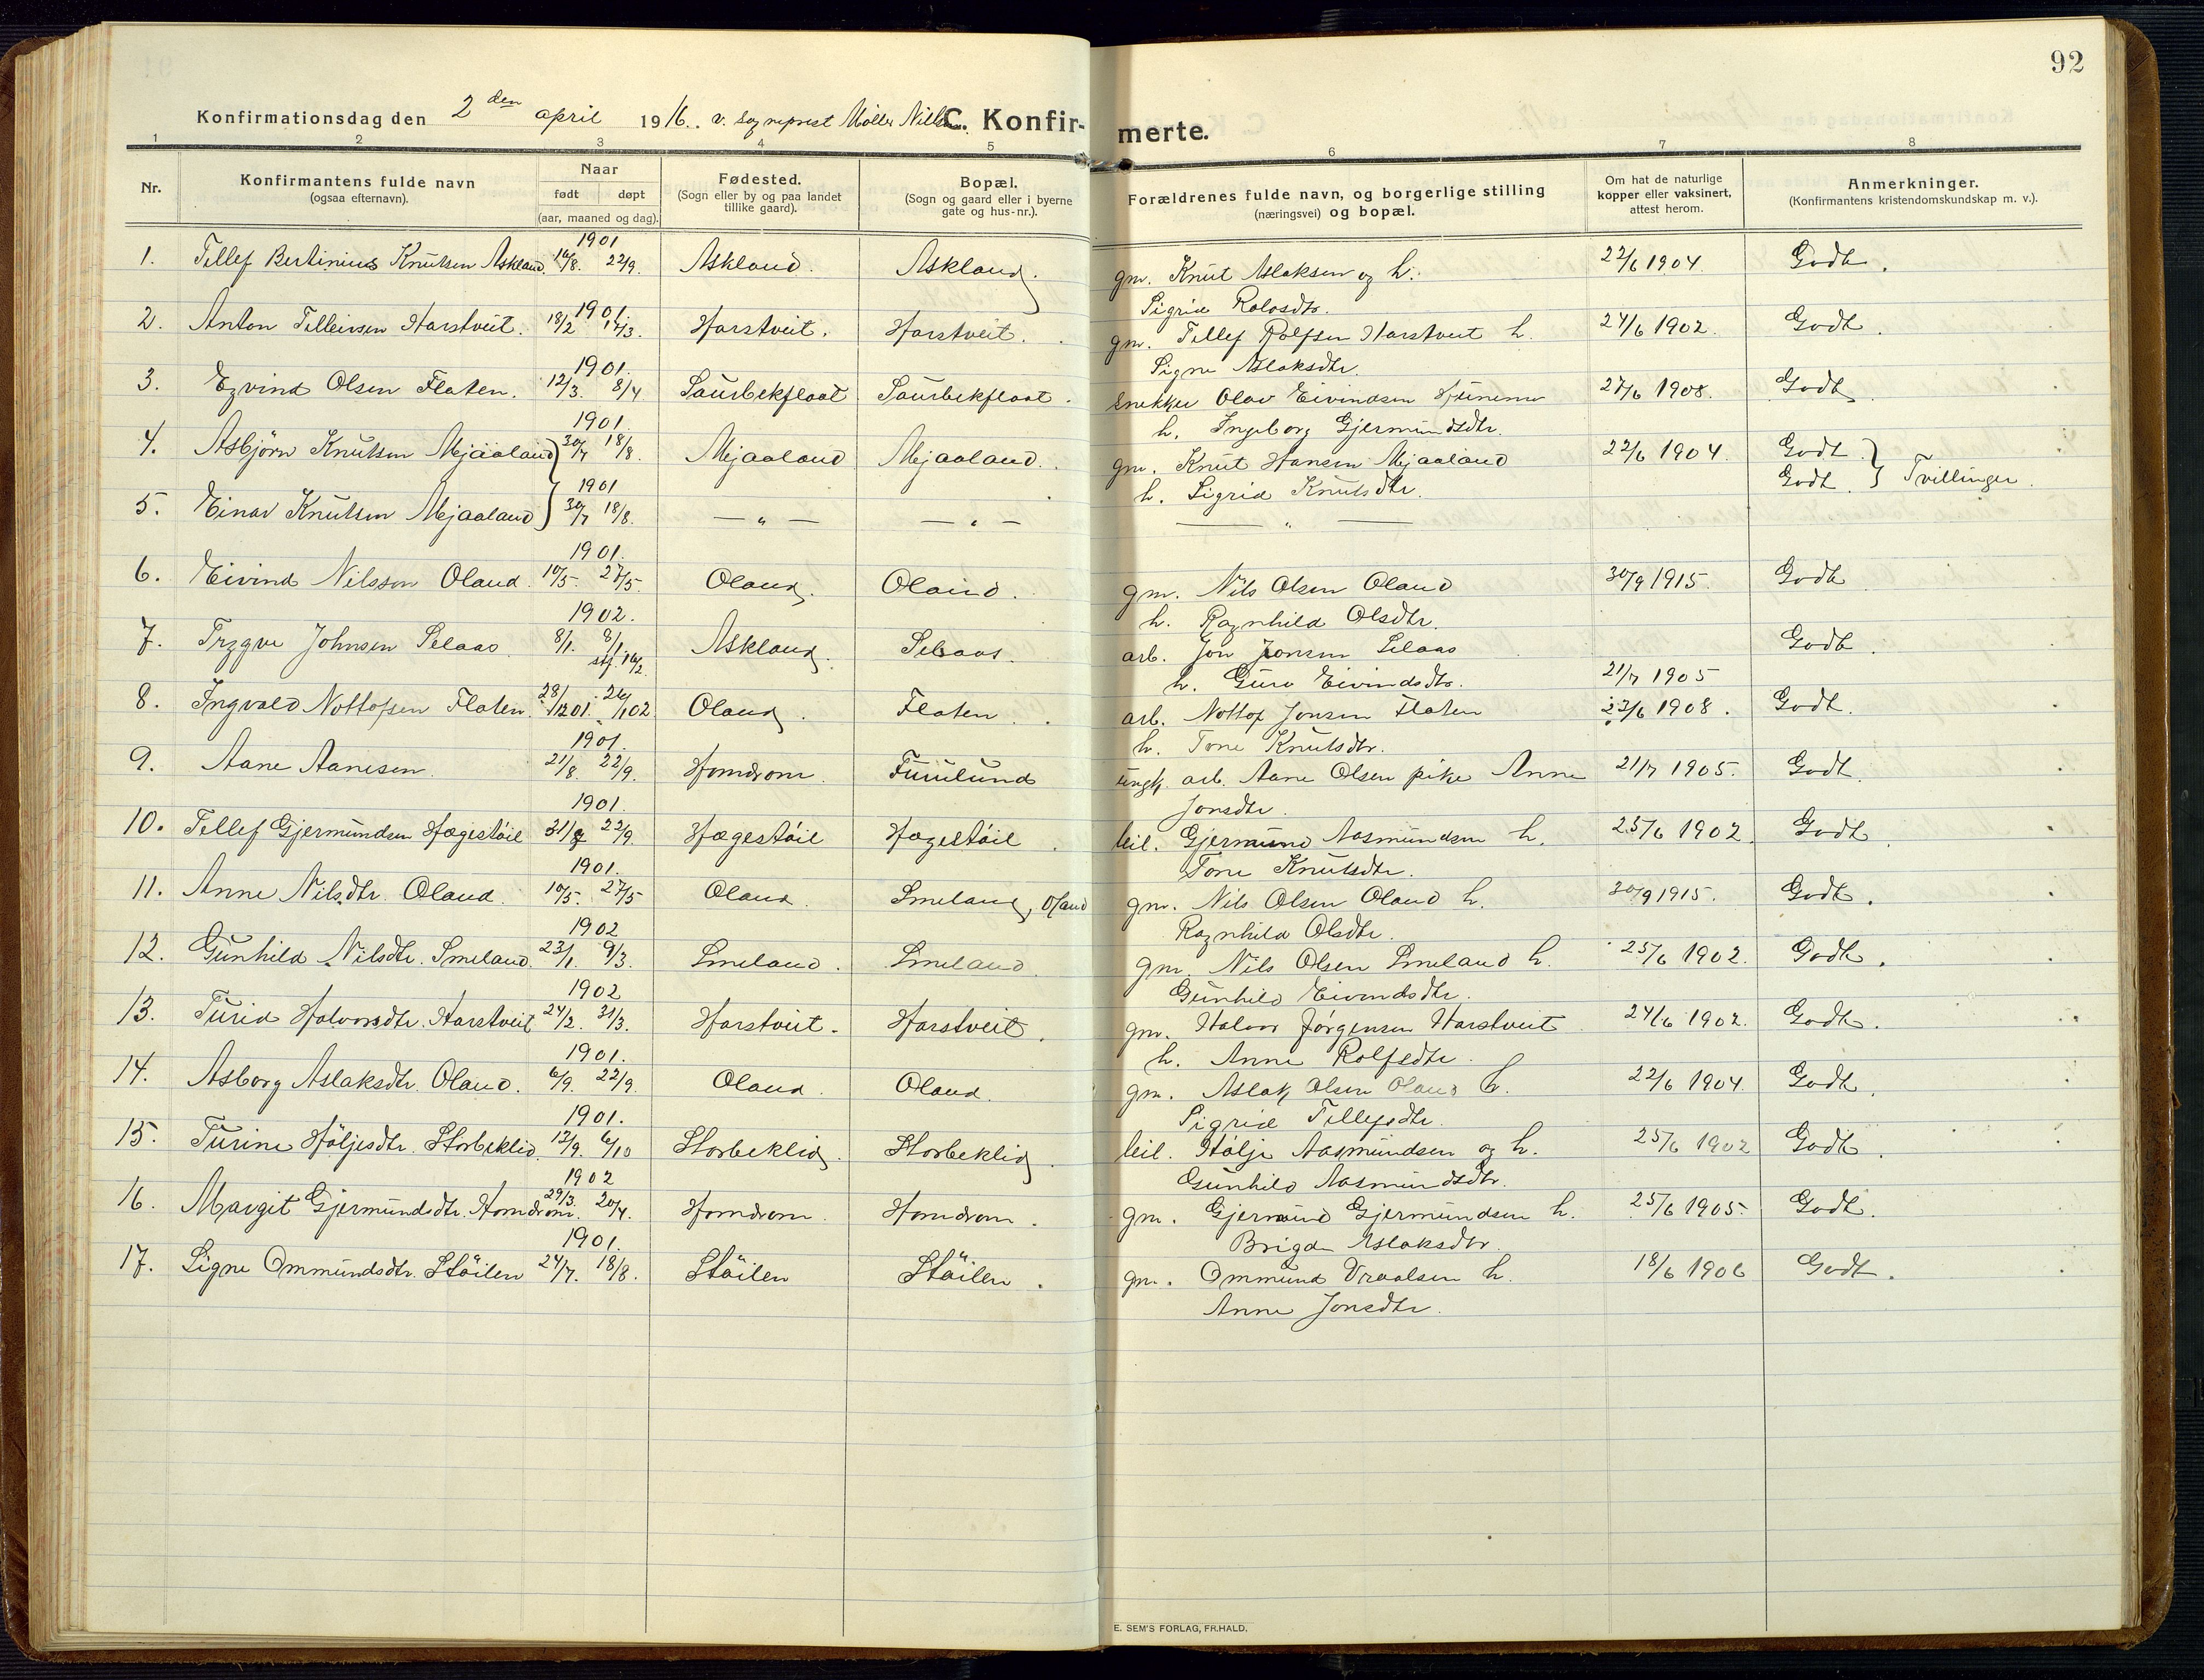 92
Konfirmationsdag den 2 den april 1916. v. sogneprest Møller Nilsen. C. Konfir-merte.
1 2 3 4 5 6 7 8
Nr. Konfirmantens fulde navn (ogsaa efternavn). Naar født døpt (aar, maaned og dag). Fødested. (Sogn eller by og paa landet tillike gaard). Bopæl. (Sogn og gaard eller i byerne gate og hus-nr.). Forældrenes fulde navn, og borgerlige stilling (næringsvei) og bopæl. Om hat de naturlige kopper eller vaksinert, attest herom. Anmerkninger. (Konfirmantens kristendomskundskap m. v.).
1901
1. Tellef Bertinius Knutsen Askland 16/8. 22/9. Askland. Askland. gm. Knut Aslaksen og h. 22/6 1904. Godt.
Sigrid
1901.
2. Anton Tellevsen Harstveit. 18/2 17/3. Harstveit. Harstveit. gm. Tellef Rolfsen Harstveit h. 24/6 1902. Godt.
Signe Aslaksdtr.
1901.
3. Eyvind Olsen Flaten. 12/3. 8/4 Saurbekflaat Saurbekflaat. snekker Olav Eivindsen 27/6 1908. Godt.
h. Ingeborg Gjermundsdtr.
1901.
4. Asbjørn Knutsen Mjaaland 30/7 18/8. Mjaaland Mjaaland. gm. Knut Hansen Mjaaland 22/6 1904. Godt. } Tvillinger.
h. Sigrid Knutsdtr. Godt.
1901
5. Einar Knutsen Mjaaland 30/7 18/8. — " — — " — — " —
1901.
6. Eivind Nilsson Oland. 10/5. 27/5. Oland. Oland. gm. Nils Olsen Oland 30/9 1915. Godt
h. Ragnhild Olsdtr.
1902.
7. Trygve Johnsen Selaas 8/1. 8/1 Askland. Selaas. arb. Jon Jonsen Selaas Godt.
stf. 16/2
h. Guro Eivindsdtr. 21/7 1905
8. Ingvald Nottofsen Flaten. 28/12 01. 26/1 02 Oland. Flaten. arb. Nottof Jonsen Flaten 27/6 1908. Godt.
h. Tone Knutsdtr.
1901.
9. Aane Aanesen. 21/8. 22/9. Homdrom. Furulund ungk. arb. Aane Olsen pike Anne 21/7 1905. Godt.
Jonsdtr.
1901.
10. Tellef Gjermundsen Hægestøil 31/8 22/9. Hægestøil Hægestøil leil. Gjermund Aasmundsen h. 25/6 1902. Godt.
Tone Knutsdtr.
1901.
11. Anne Nilsdtr. Oland. 10/5. 27/5 Oland. Smeland, Oland gm. Nils Olsen Oland h. 30/9 1915. Godt.
Ragnhild Olsdtr.
1902
12. Gunhild Nilsdtr. Smeland. 23/1. 9/3. Smeland. Smeland. gm. Nils Olsen Smeland h. 25/6 1902. Godt.
Gunhild Eivindsdtr.
1902
13. Turid Halvorsdtr. Harstveit 24/2. 31/3. Harstveit. Harstveit. gm. Halvor Jørgensen Harstveit 24/6 1902. Godt.
h. Anne Rolfsdtr.
1901.
14. Asborg Aslaksdtr. Oland. 6/9. 22/9. Oland. Oland. gm. Aslak Olsen Oland h. 22/6 1904. Godt.
Sigrid Tellefsdtr.
1901.
15. Turine Høljesdtr. Storbeklid. 12/9. 6/10 Storbeklid. Storbeklid. leil. Hølje Aasmundsen og h. 25/6 1902 Godt.
Gunhild Aasmundsdtr.
1902
16. Margit Gjermundsdtr. Homdrom. 29/3. 20/4. Homdrom. Homdrom. gm. Gjermund Gjermundsen h. 25/6 1905. Godt.
Brigde Aslaksdtr.
1901.
17. Signe Ommundsdtr. Støilen 24/7. 18/8. Støilen Støilen. gm. Ommund Vraalsen h. 18/6 1906 Godt.
Anne Jonsdtr.
E. SEM'S FORLAG, FR.HALD.